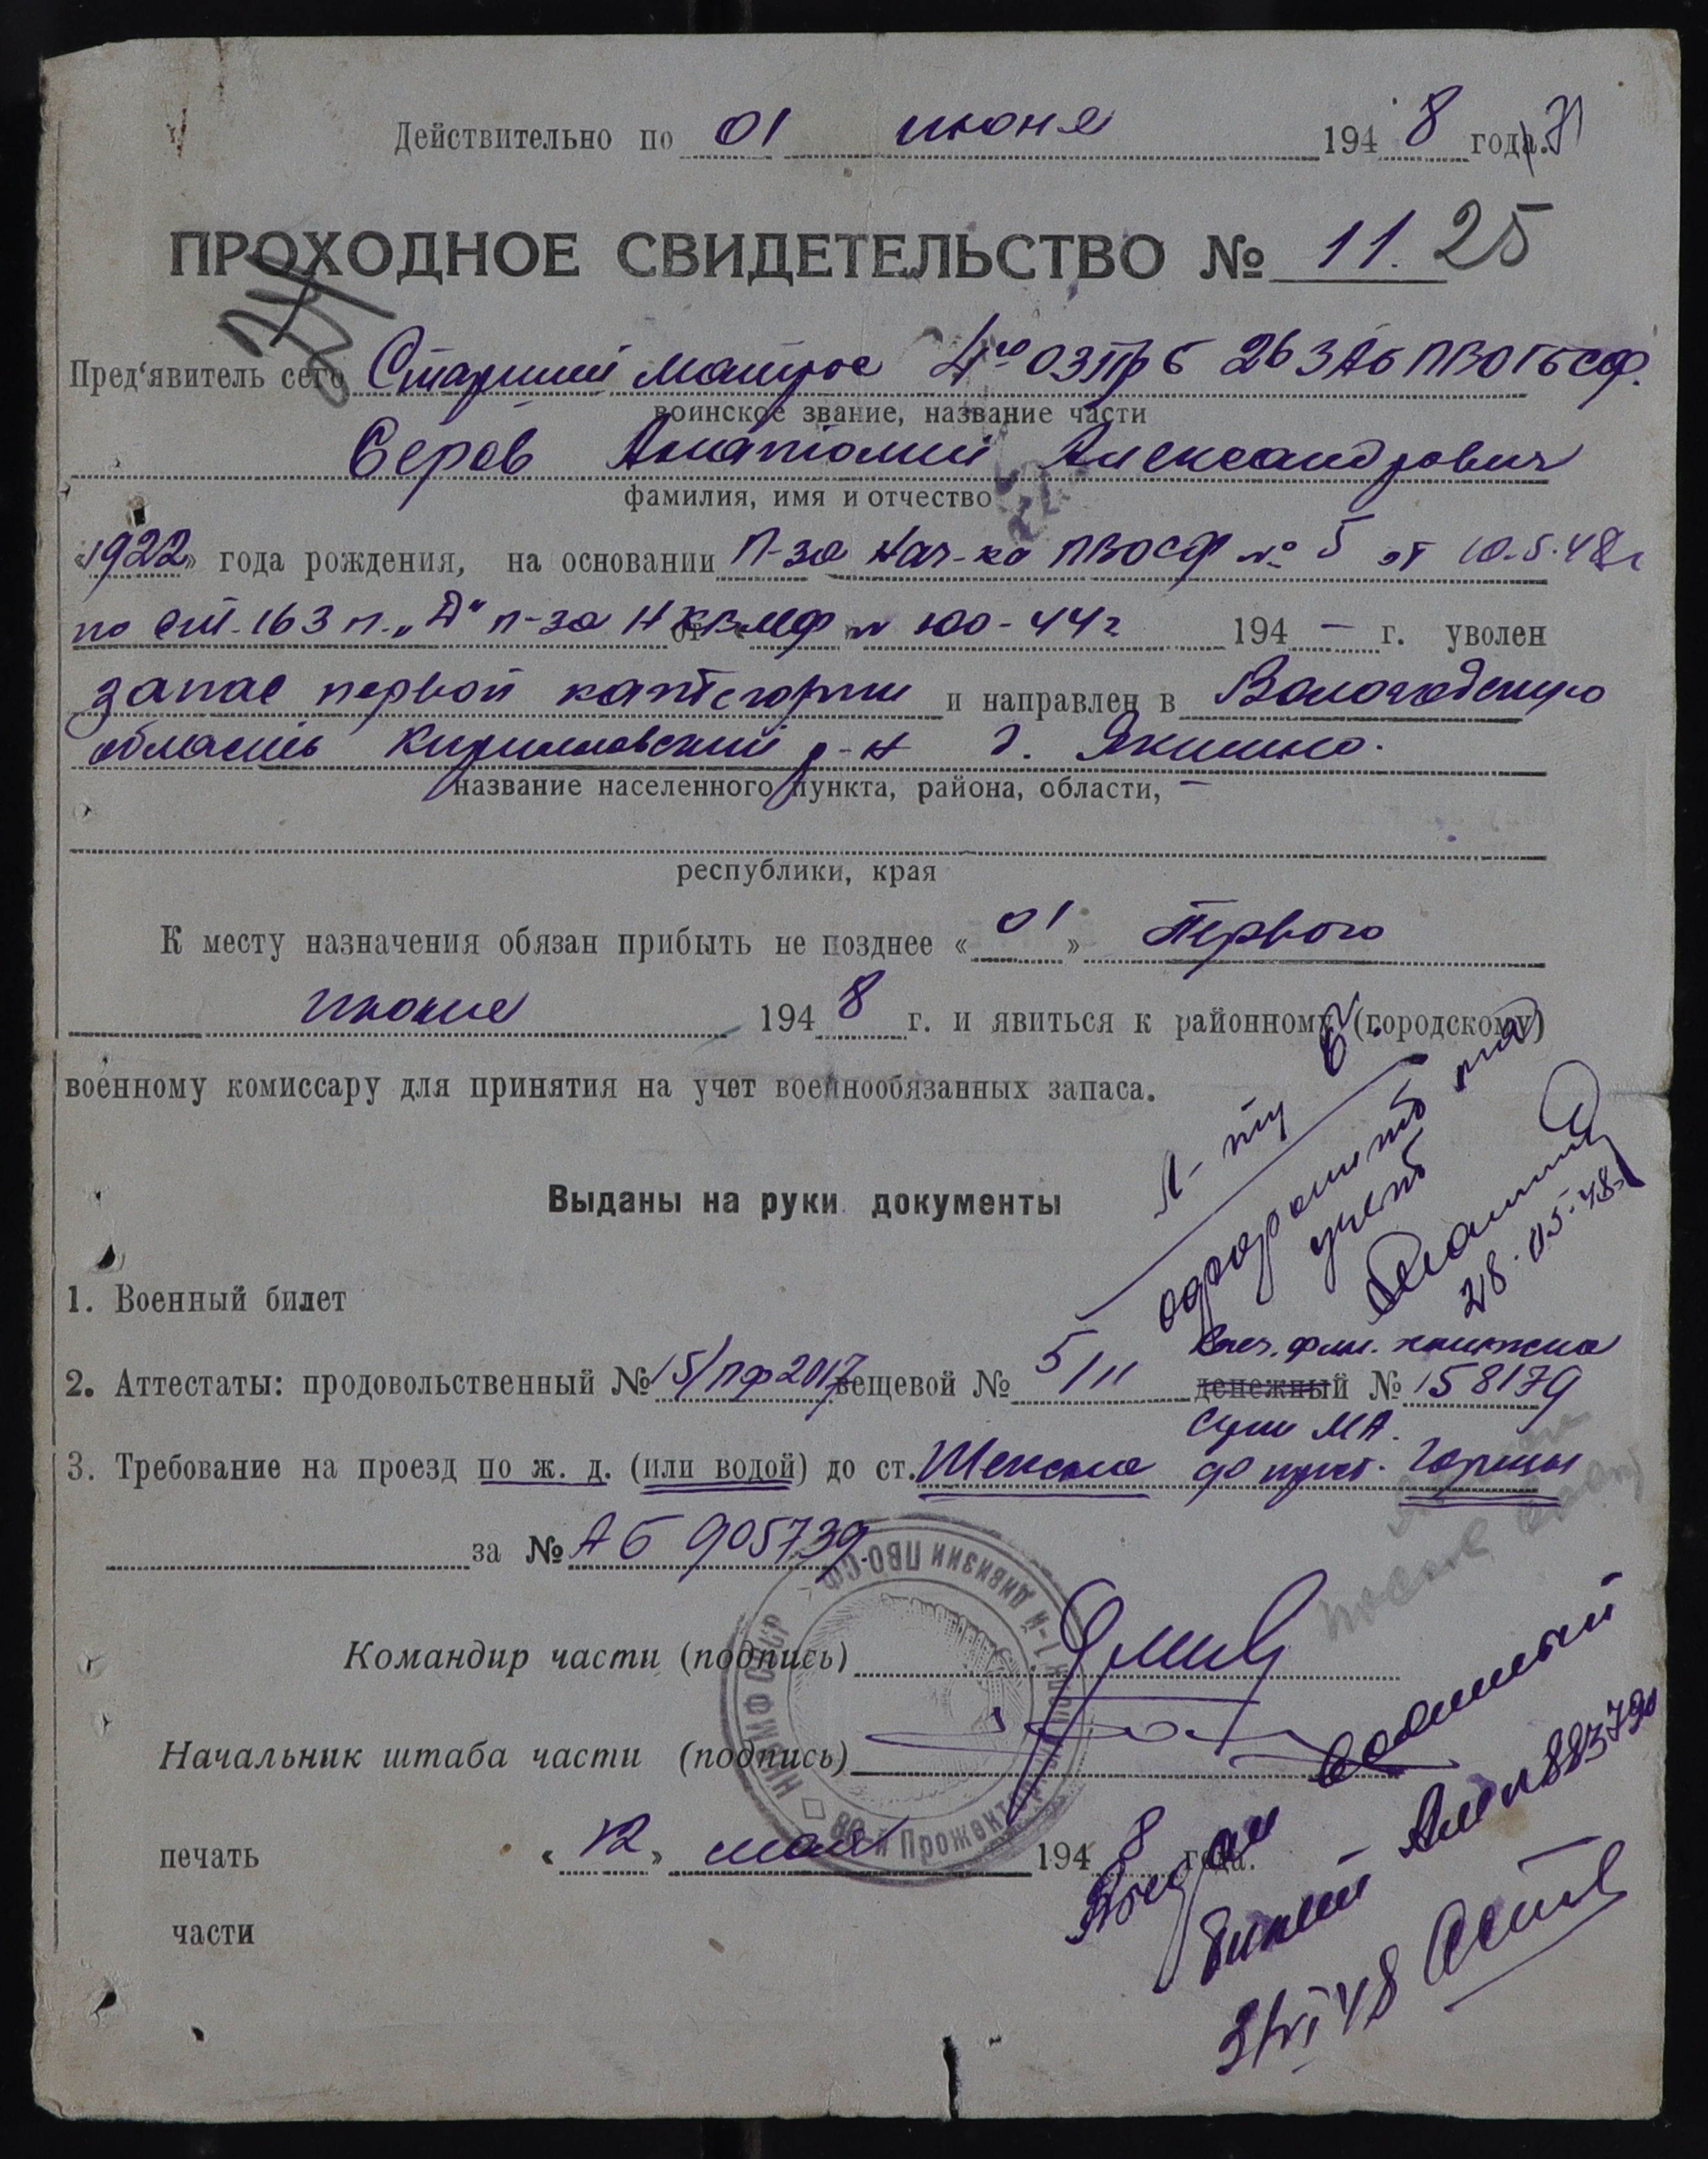 Действительно по 01 июня 1948 года.
ПРОХОДНОЕ СВИДЕТЕЛЬСТВО № 11. 25
24
Пред'явитель сего Старший матрос 4го ОЗПрб 26 ЗАБ ПВО ГБ СФ.
воинское звание, название части
Серов Анатолий Александрович
фамилия, имя и отчество
«1922» года рождения, на основании П-за Нач-ка ПВОСФ № 5 от 10.5.48г
по ст. 163 п. „Д“ п-за НКВМФ № 100-44г от 194 – г. уволен
запас первой категории и направлен в Вологодскую
область Кирилловский р-н д. Якшино.
название населенного пункта, района, области, –
республики, края
К месту назначения обязан прибыть не позднее «01» Первого
июня 1948 г. и явиться к районному (городскому)
военному комиссару для принятия на учет военнообязанных запаса.
Л-ту
оформить на
учет
28.05.48
Выданы на руки документы
1. Военный билет
2. Аттестаты: продовольственный № 15/ПФ2017 вещевой № 5/11 денежный № 158179
Расч. фин. книжка
3. Требование на проезд по ж. д. (или водой) до ст. Шексна до прист. Горицы
за № АБ 905739.
Командир части (подпись)
Начальник штаба части (подпись)
печать «12» мая 1948 года.
части
НКВМФ СССР
й Прожекторный
1-й дивизии ПВО СФ
Выдан военный
билет
3/VI 48